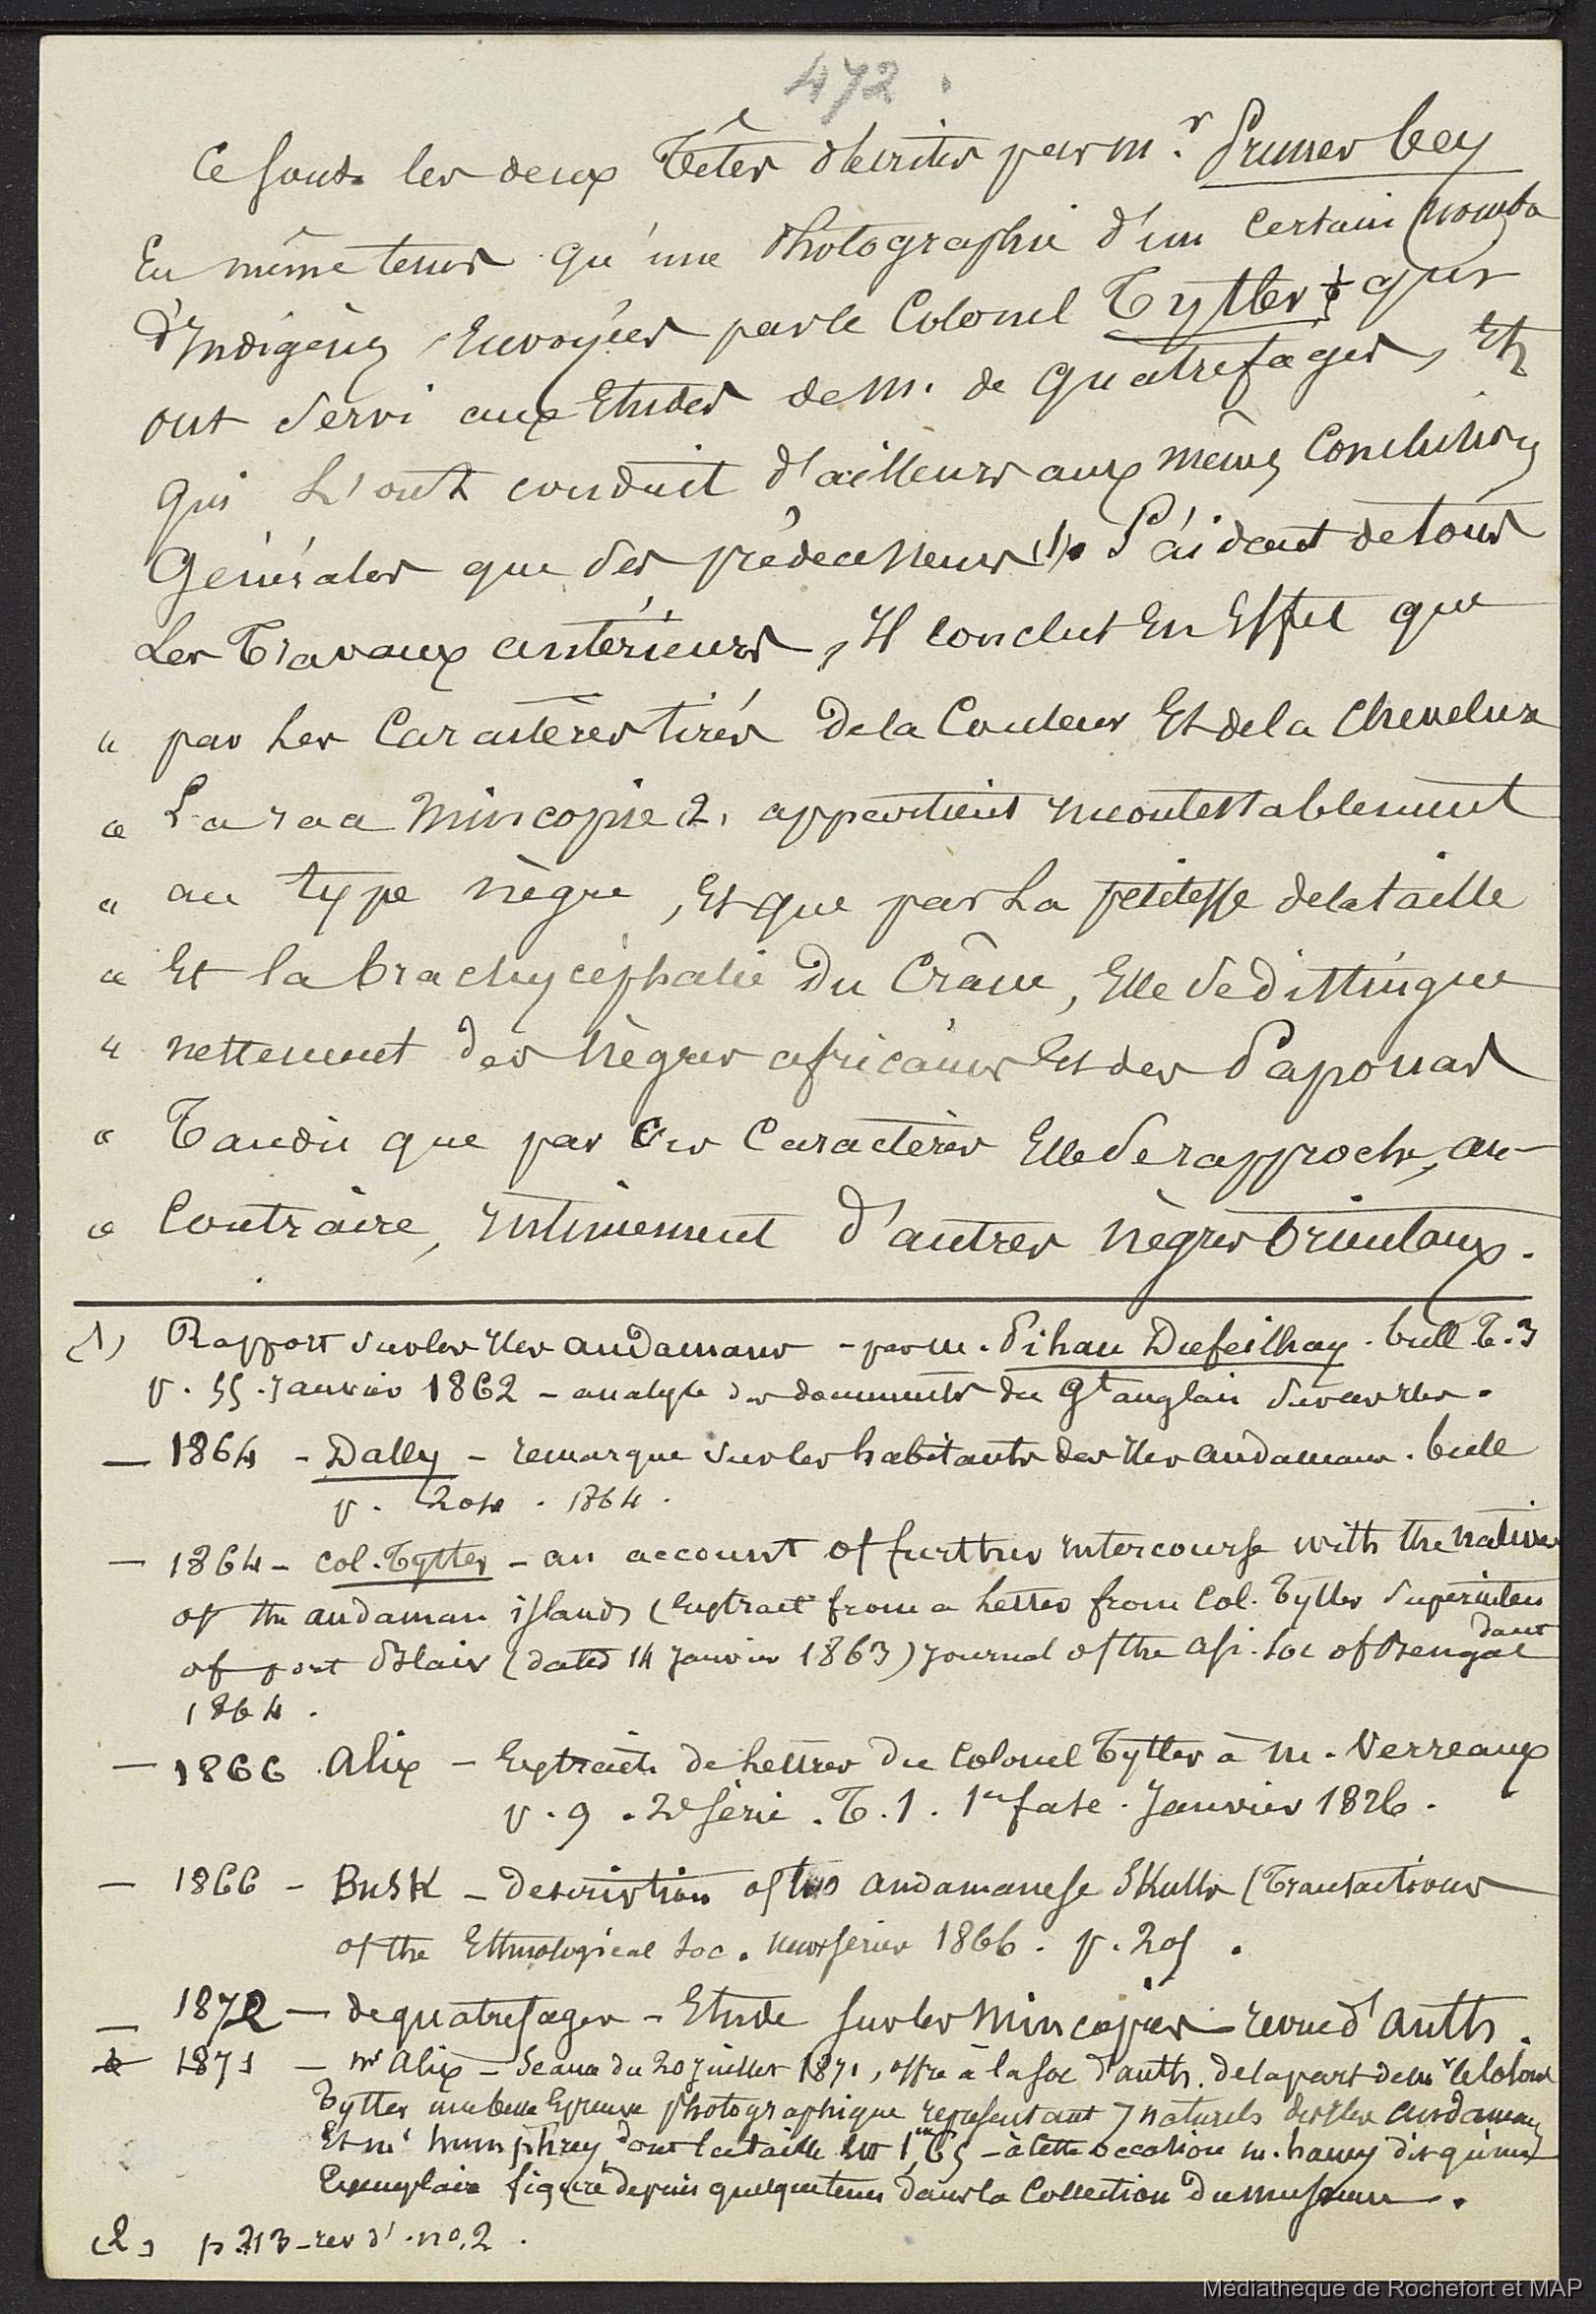 472.
Ce sont les deux Têtes décrites par mr. Pruner bey
En même tems qu'une Photographie d'un Certain nombre
d'Indigènes, Envoyées par le Colonel Tytler, qui
ont Servi aux Etudes de M. de Quatrefages, Et
qui L'ont conduit d'ailleurs aux mêmes Conclusions
Générales que Ses prédecesseurs (1). S'aidant de tous
Les Travaux antérieurs, Il conclut En Effet que
" par Les Caractères tirés de la Couleur Et de la Chevelure
" La race Mincopie (2) appartient incontestablement
" au type nègre, Et que par La petitesse de la taille
" Et la brachycéphalie du Crâne, Elle Se distingue
" nettement des Nègres africains Et des Papouas
" Tandis que par Ces Caractères Elle Se rapproche, au
" Contraire, intimement d'autres nègres Orientaux.
(1) Rapport Sur les Iles andamans - par m. Pihan Dufeilhay. bull. T. 3
p. 55. Janvier 1862 - analyse des documents du Gt anglais Sur ces Iles.
— 1864 - Dally - remarque Sur les habitants des Iles andamans. bull
p. 204. 1864.
— 1864 - Col. Tytler - an account of further intercourse with the natives
of the andaman islands (Extract from a Letter from Col. Tytler Superinten
dant
of port Blair (dated 14 Janvier 1863) Journal of the Asi. Soc of Bengal
1864.
— 1866 Alix - Extraits de Lettres du Colonel Tytler à M. Verreaux
p. 9. 2e Série. T. 1. 1er fasc. Janvier 1826.
— 1866 - Busk - description of two andamanese Skulls (Transactions
of the Ethnological Soc. new series 1866. p. 205.
— 1872 — de quatrefages - Etude sur les Mincopies - revue d'Anth.
— 1871 — Mr Alix - Seance du 20 juillet 1871, offre à la Soc d'anth. de la part de mr le Colonel
Tytler une belle Epreuve photographique representant 7 naturels des Iles andaman
Et mr humphrey, dont la taille Est 1m,65 - à cette occasion m. hamy dit qu'une
Exemplaire figure depuis quelque tems dans la Collection du museum.
(2) p 213 - rev d'. no. 2.
Médiathèque de Rochefort et MAP